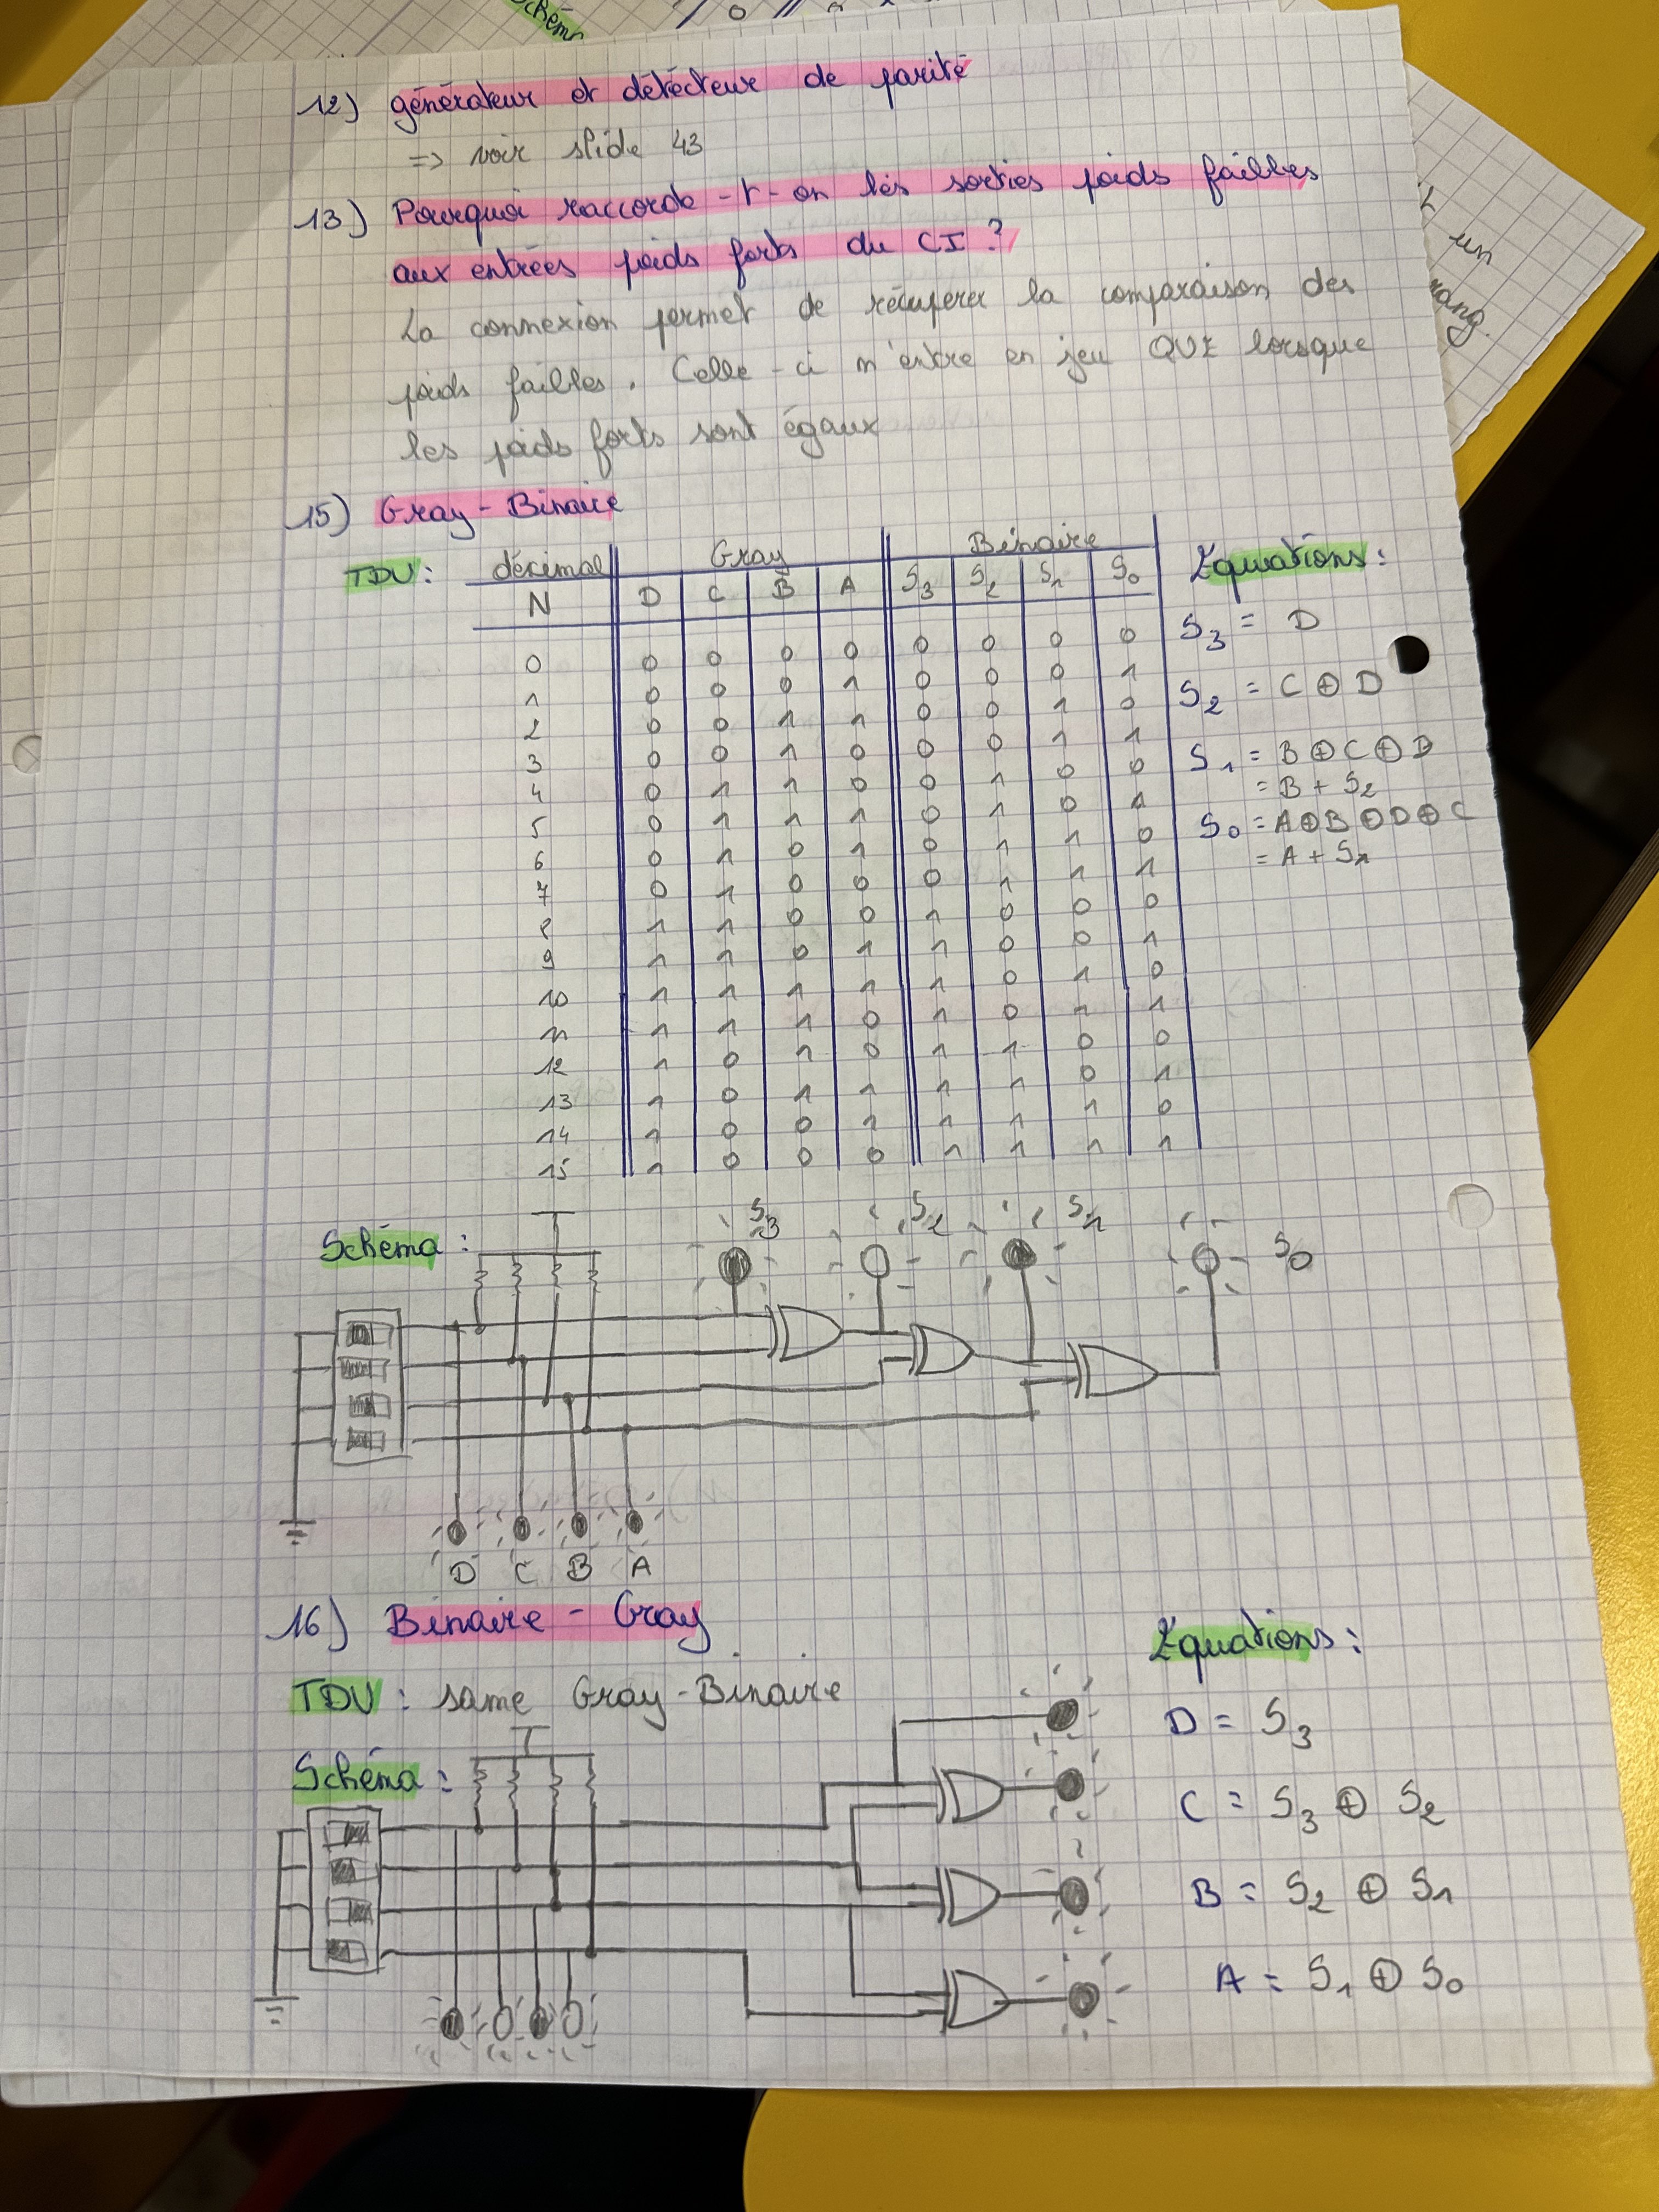 Schéma
un
rang.
12) générateur et détecteur de parité
=> voir slide 43
13) Pourquoi raccorde-t-on les sorties poids faibles
aux entrées poids forts du CI ?
La connexion permet de récuperer la comparaison des
poids faibles. Celle-ci n'entre en jeu QUE lorsque
les poids forts sont égaux
15) Gray - Binaire
TDV : décimal Gray Binaire Equations :
N D C B A S3 S2 S1 S0
0 0 0 0 0 0 0 0 0
1 0 0 0 1 0 0 0 1
2 0 0 1 1 0 0 1 0
3 0 0 1 0 0 0 1 1
4 0 1 1 0 0 1 0 0
5 0 1 1 1 0 1 0 1
6 0 1 0 1 0 1 1 0
7 0 1 0 0 0 1 1 1
8 1 1 0 0 1 0 0 0
9 1 1 0 1 1 0 0 1
10 1 1 1 1 1 0 1 0
11 1 1 1 0 1 0 1 1
12 1 0 1 0 1 1 0 0
13 1 0 1 1 1 1 0 1
14 1 0 0 1 1 1 1 0
15 1 0 0 0 1 1 1 1
S3 = D
S2 = C ⊕ D
S1 = B ⊕ C ⊕ D
= B + S2
S0 = A ⊕ B ⊕ D ⊕ C
= A + S1
Schéma : S3 S2 S1 S0
D C B A
16) Binaire - Gray
TDV : same Gray-Binaire
Schéma :
Equations :
D = S3
C = S3 ⊕ S2
B = S2 ⊕ S1
A = S1 ⊕ S0